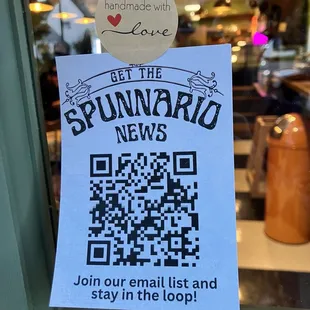 handmade with
love
GET THE
SPUNNARIO
NEWS
Join our email list and
stay in the loop!